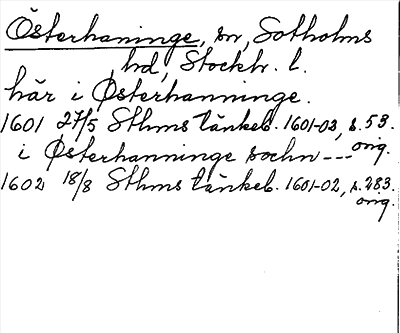 Österhaninge, sn, Sotholms
hd, Stockh. l.
här i Østerhanninge.
1601 27/5 Sthms tänkeb. 1601-02, s. 53.
orig.
i Østerhanninge sochn ---
1602 18/8 Sthms tänkeb. 1601-02, s. 283.
orig.